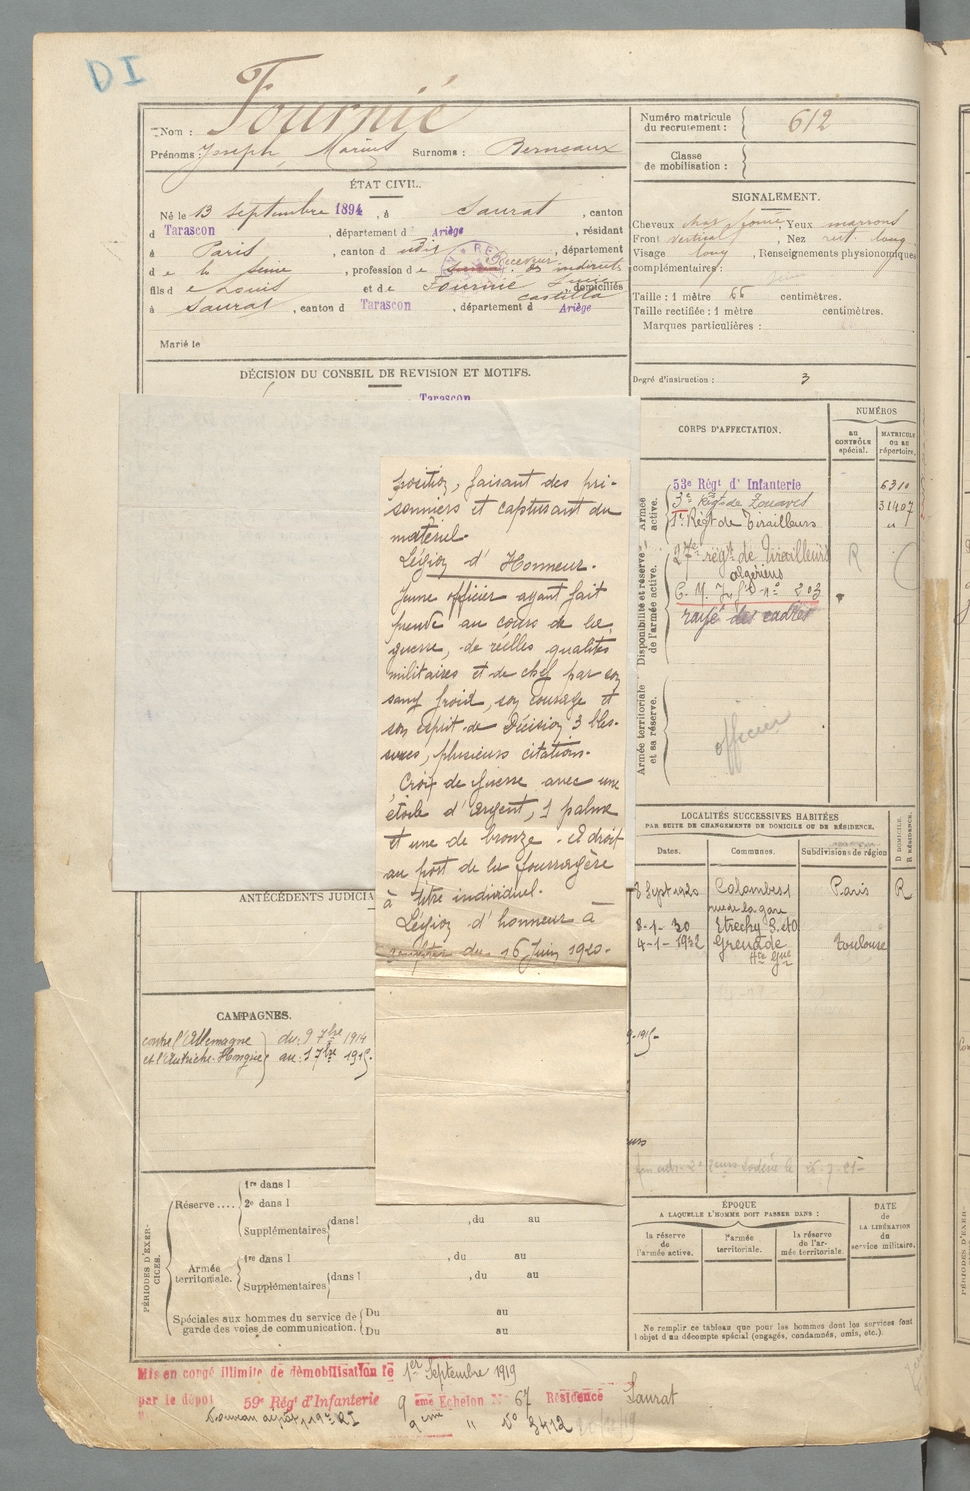 DI
Nom : Fournié
Prénoms : Joseph, Marius Surnoms : Berneaux
Numéro matricule du recrutement : 612
Classe de mobilisation :
ÉTAT CIVIL.
Né le 13 septembre 1894, à Saurat, canton
d Tarascon, département d Ariège, résidant
à Paris, canton d udit, département
d e la Seine, profession d e Receveur des indirects
fils d e Louis et d e Fournié castilla domiciliés
à Saurat, canton d Tarascon, département d Ariège
Marié le
SIGNALEMENT.
Cheveux chat foncé, Yeux marrons
Front vertical, Nez rect. long
Visage long, Renseignements physionomiques
complémentaires :
Taille : 1 mètre 66 centimètres.
Taille rectifiée : 1 mètre centimètres.
Marques particulières :
Degré d'instruction : 3
DÉCISION DU CONSEIL DE REVISION ET MOTIFS.
Tarascon
position, faisant des pri-
sonniers et capturant du
matériel.
Légion d'Honneur.
Jeune officier ayant fait
preuve au cours de la
guerre, de réelles qualités
militaires et de chef par son
sang froid, son courage et
son esprit de décision 3 bles-
sures, plusieurs citations.
Croix de guerre avec une
étoile d'argent, 1 palme
et une de bronze. A droit
au port de la fourragère
à titre individuel.
Légion d'honneur à
compter du 16 Juin 1920.
CORPS D'AFFECTATION.
NUMÉROS
au CONTRÔLE spécial.
MATRICULE ou au répertoire.
Armée active.
53e Régt d'Infanterie 6310
3e Régt de Zouaves 31407
1er Régt de Tirailleurs "
Disponibilité et réserve de l'armée active.
27e régt de Tirailleurs R
algériens
C. M. I. n° 203
rayé des cadres
Armée territoriale et sa réserve.
officier
LOCALITÉS SUCCESSIVES HABITÉES
PAR SUITE DE CHANGEMENTS DE DOMICILE OU DE RÉSIDENCE.
Dates. Communes. Subdivisions de région D DOMICILE R RÉSIDENCE.
8 Sept 1920 Colombes Paris R
rue de la gare
8-1-30 Etrechy S. et O
4-1-1932 Grenade Toulouse
Hte Gne
ANTÉCÉDENTS JUDICIA
CAMPAGNES.
contre l'Allemagne du : 9 7bre 1914
et l'Autriche-Hongrie au : 1 7bre 1919.
9-1915-
urs
PÉRIODES D'EXERCICES.
Réserve ....
1re dans l
2e dans l
Supplémentaires dans l , du au
Armée territoriale.
1re dans l , du au
Supplémentaires dans l , du au
Spéciales aux hommes du service de garde des voies de communication.
Du au
Du au
ÉPOQUE
A LAQUELLE L'HOMME DOIT PASSER DANS :
la réserve de l'armée active.
l'armée territoriale.
la réserve de l'armée territoriale.
DATE de LA LIBÉRATION du service militaire.
Ne remplir ce tableau que pour les hommes dont les services font
l'objet d'un décompte spécial (engagés, condamnés, omis, etc.).
Mis en congé illimité de démobilisation le 1er Septembre 1919
par le dépôt 59e Régt d'Infanterie 9 ème Echelon N° 67 Résidence Saurat
9ème " N° 3412